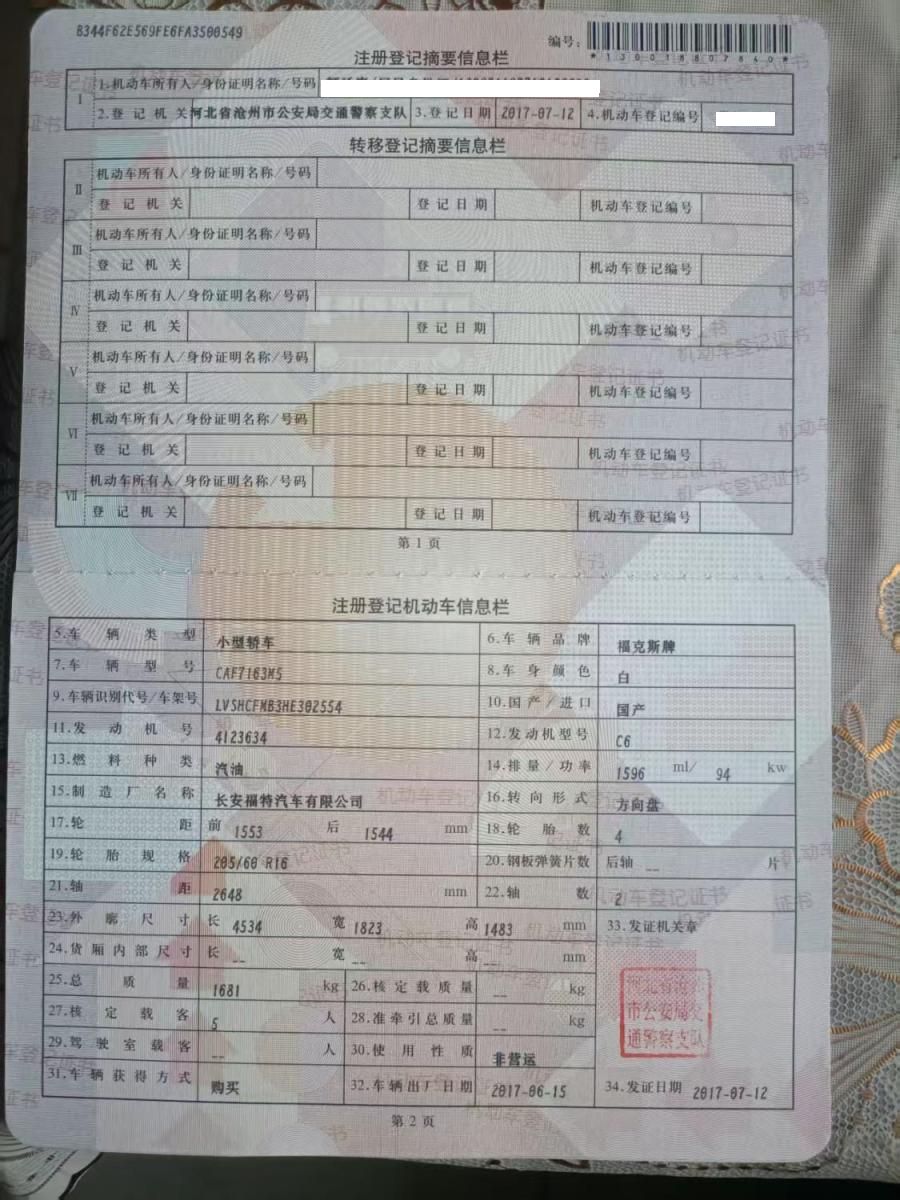 B344F62E569FE6FA3500549
编号:
*130018807840*
注册登记摘要信息栏
I 1.机动车所有人/身份证明名称/号码
2.登记机关 河北省沧州市公安局交通警察支队 3.登记日期 2017-07-12 4.机动车登记编号
转移登记摘要信息栏
II 机动车所有人/身份证明名称/号码
登记机关 登记日期 机动车登记编号
III 机动车所有人/身份证明名称/号码
登记机关 登记日期 机动车登记编号
IV 机动车所有人/身份证明名称/号码
登记机关 登记日期 机动车登记编号
V 机动车所有人/身份证明名称/号码
登记机关 登记日期 机动车登记编号
VI 机动车所有人/身份证明名称/号码
登记机关 登记日期 机动车登记编号
VII 机动车所有人/身份证明名称/号码
登记机关 登记日期 机动车登记编号
第1页
注册登记机动车信息栏
5.车辆类型 小型轿车 6.车辆品牌 福克斯牌
7.车辆型号 CAF7163M5 8.车身颜色 白
9.车辆识别代号/车架号 LVSHCFMB3HE302554 10.国产/进口 国产
11.发动机号 4123634 12.发动机型号 C6
13.燃料种类 汽油 14.排量/功率 1596 ml/ 94 kw
15.制造厂名称 长安福特汽车有限公司 16.转向形式 方向盘
17.轮距 前 1553 后 1544 mm 18.轮胎数 4
19.轮胎规格 205/60 R16 20.钢板弹簧片数 后轴 -- 片
21.轴距 2648 mm 22.轴数 2
23.外廓尺寸 长 4534 宽 1823 高 1483 mm 33.发证机关章
24.货厢内部尺寸 长 -- 宽 -- 高 -- mm
25.总质量 1681 kg 26.核定载质量 -- kg
河北省沧州
市公安局交
通警察支队
27.核定载客 5 人 28.准牵引总质量 -- kg
29.驾驶室载客 -- 人 30.使用性质 非营运
31.车辆获得方式 购买 32.车辆出厂日期 2017-06-15 34.发证日期 2017-07-12
第2页